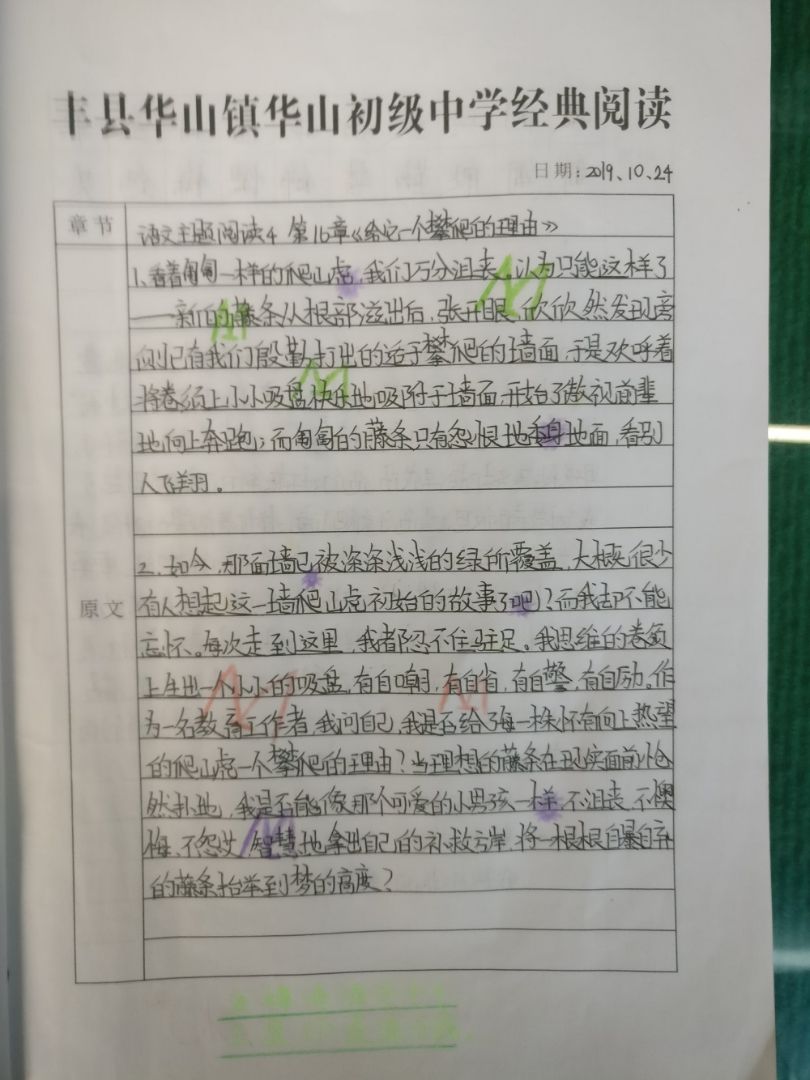 丰县华山镇华山初级中学经典阅读
日期：2019、10、24
章节
语文主题阅读4 第16章《给它一个攀爬的理由》
1、看着匍匐一样的爬山虎，我们万分沮丧。以为只能这样了
——新的藤条从根部滋出后，张开眼，欣欣然发现旁
侧已有我们殷勤打出的适于攀爬的墙面，于是欢呼着
将卷须上小小吸盘快乐地吸附于墙面，开始了傲视前辈
地向上奔跑；而匍匐的藤条只有怨恨地委身地面，看别
人飞翔。
原文
2、如今，那面墙已被深深浅浅的绿所覆盖，大概很少
有人想起这一墙爬山虎初始的故事了吧？而我却不能
忘怀。每次走到这里，我都忍不住驻足。我思维的卷须
上生出一个小小的吸盘，有自嘲，有自省，有自警，有自励。作
为一名教育工作者，我问自己，我是否给了每一株怀有向上热望
的爬山虎一个攀爬的理由？当理想的藤条在现实面前怆
然扑地，我是否能像那个可爱的小男孩一样，不沮丧，不懊
悔，不怨艾，智慧地拿出自己的补救方岸，将一根根自暴自弃
的藤条抬举到梦的高度？